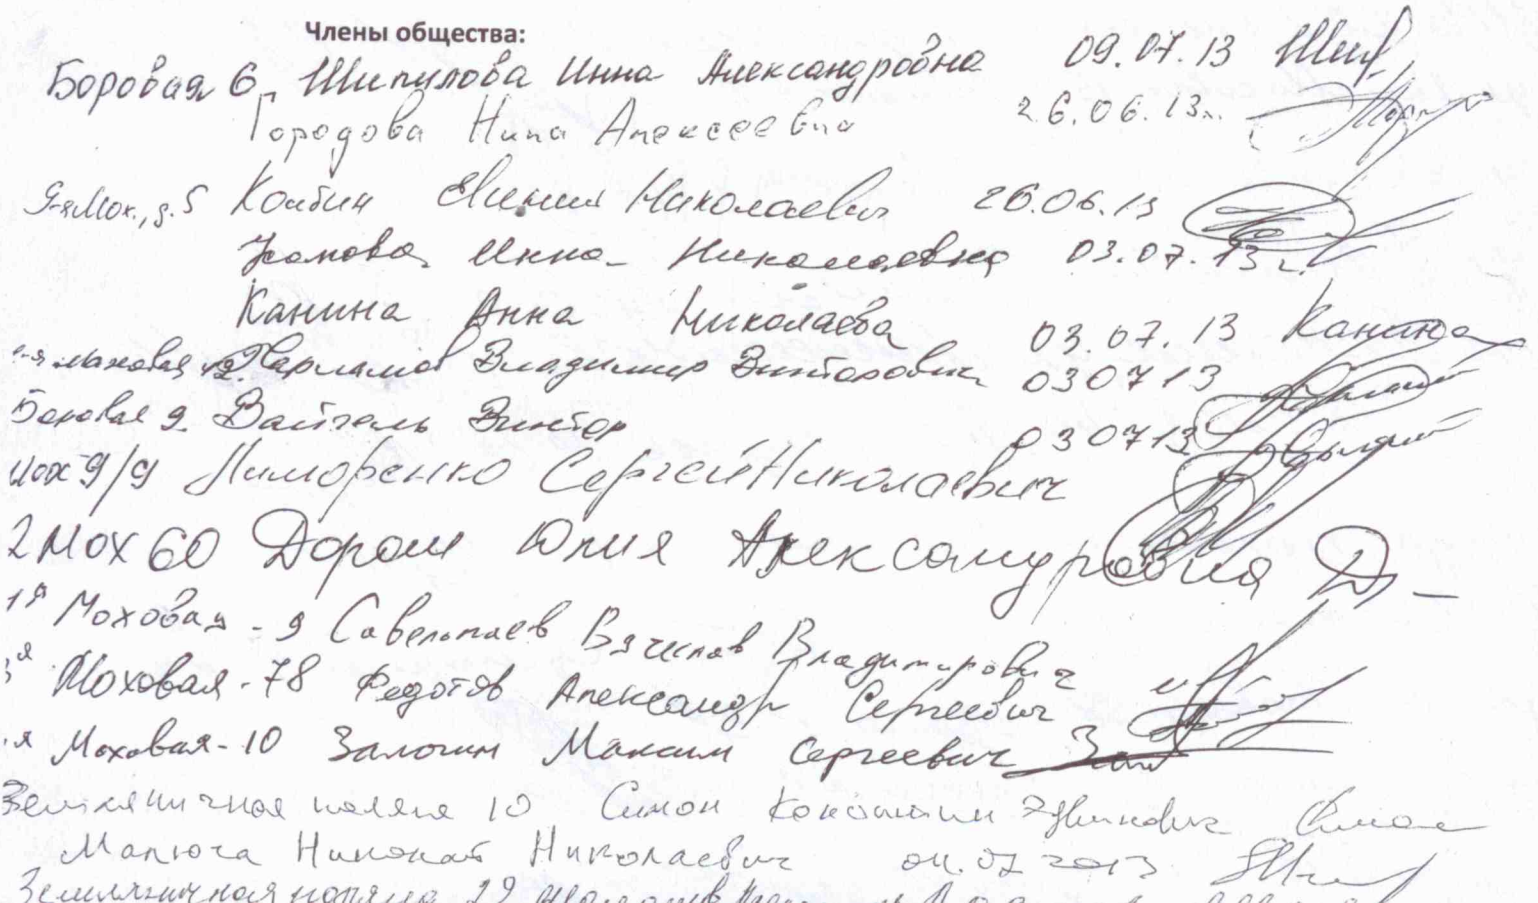 Члены общества:
Боровая 6 Шипулова Инна Александровна 09.07.13
Городова Нина Алексеевна 26.06.13г.
Мох., д. 5 Колбин Николаевич 26.06.13
Инна Николаевна 03.07.13г.
Канина Анна Николаева 03.07.13 Канина
Моховая Варламов Владимир Викторович 030713
Боровая 9 Вайгель Виктор 030713
Мох 9/9 Лиморенко Сергей Николаевич
2 Мох 60 Дорош Юлия Александровна
1я Моховая - 9 Савельев Вячеслав Владимирович
Моховая - 78 Федотов Александр Сергеевич
Моховая - 10 Залогин Максим Сергеевич
Земляничная поляна 10 Симон
Малюга Николай Николаевич 04.07 2013
Земляничная поляна